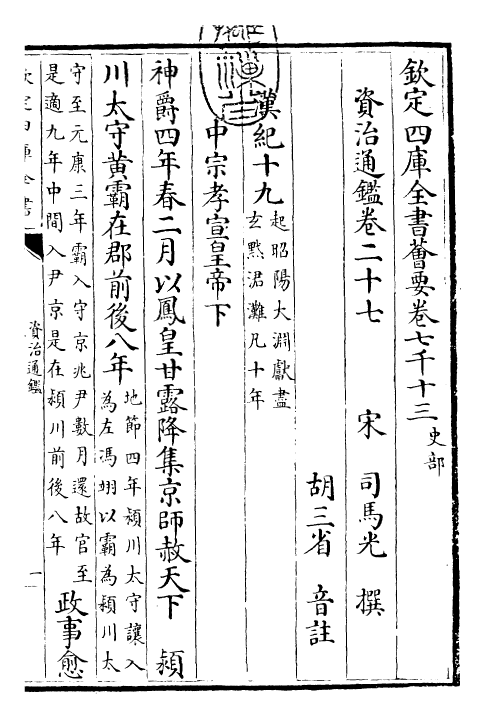 欽定四庫全書薈要卷七千十三 史部
資治通鑑卷二十七
宋 司馬光 撰
胡三省 音註
漢紀十九 起昭陽大淵獻盡
玄黓涒灘凡十年
中宗孝宣皇帝下
神爵四年春二月以鳳皇甘露降集京師赦天下 潁
川太守黃霸在郡前後八年 地節四年潁川太守讓入
為左馮翊以霸為潁川太
守至元康三年霸入守京兆尹數月還故官至
是適九年中間入尹京是在潁川前後八年
政事愈
欽定四庫全書
資治通鑑
一